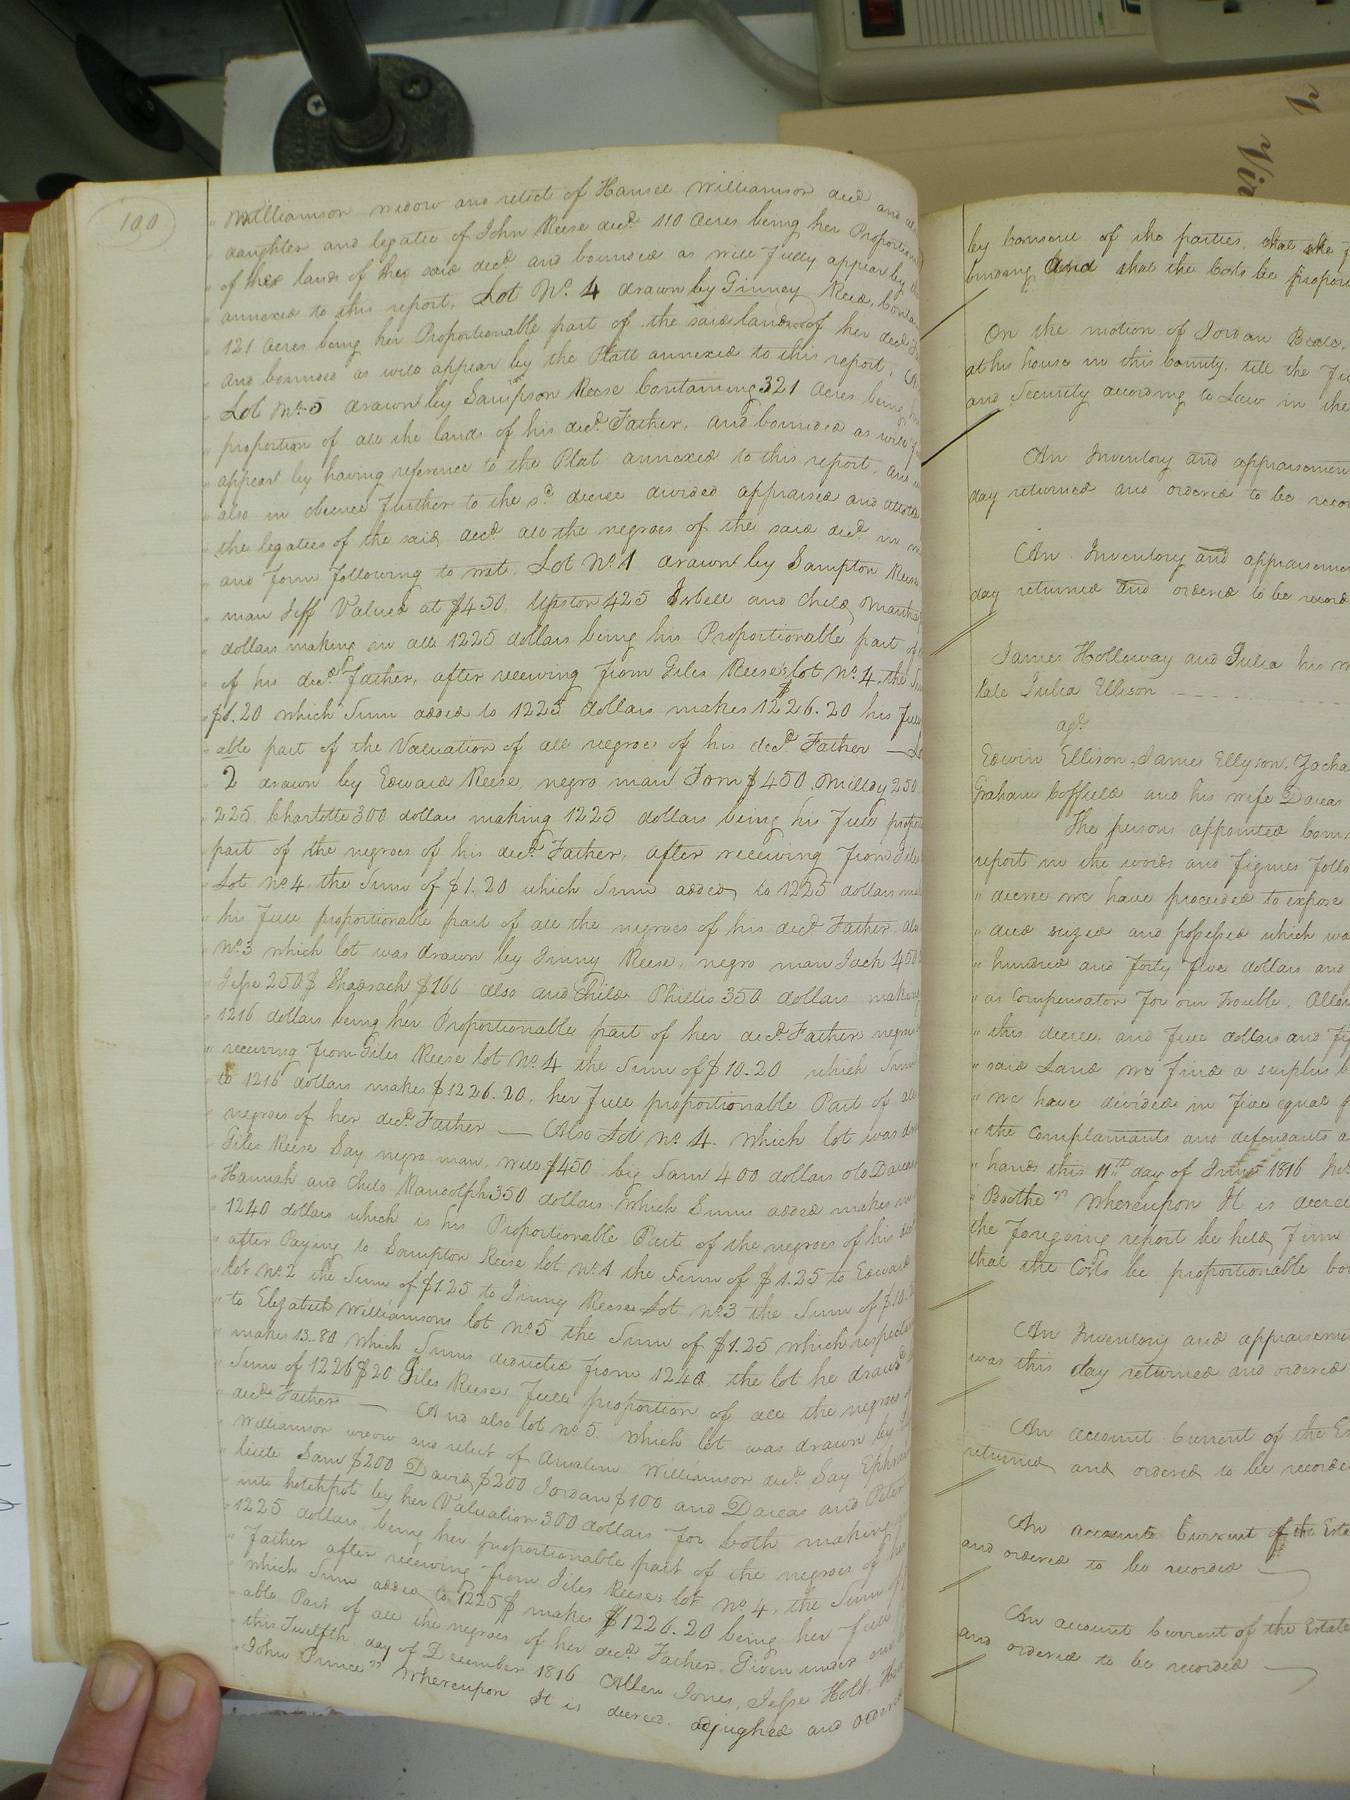 190
" Williamson widow and relect of Hansel Williamson decd and al
" daughter and legatee of John Reese decd 110 Acres being her Proportion
" of the lands of her said decd and bounded as will fully appear by the
" annexed to this report, Lot No. 4 drawn by Ginney Reese, Contain
" 121 Acres being her Proportionable part of the said lands of her decd
" and bounded as will appear by the Platt annexed to this report,
" Lot No. 5 drawn by Sampson Reese Containing 321 Acres being
" proportion of all the lands of his decd Father, and bounded as will
" appear by having reference to the Plat annexed to this report, and
" also in obedience further to the sd decree divided appraised and allotted
" the legatees of the said decd all the negroes of the said decd in
" and form following to wit. Lot No. 1 drawn by Sampton Reese
" man Jeff Valued at $450. Upston 425 Isbell and Child Martha
" dollars making in all 1225 dollars being his Proportionable part of
" of his decd father, after receiving from Giles Reese's lot No. 4, the Sum
" $1.20 which Sum added to 1225 dollars makes $1226.20 his full
" able part of the Valuation of all negroes of his decd Father — Lo
" 2 drawn by Edward Reese, negro man Tom $450, Milley 250
" 225. Charlotte 300 dollars making 1225 dollars being his full propor
" part of the negroes of his decd Father, after receiving from Giles
" Lot No. 4 the Sum of $1.20 which Sum added to 1225 dollars ma
" his full proportionable part of all the negroes of his decd Father. also
" No. 3 which lot was drawn by Jinny Reese, negro man Jack 450
" Jesse 250$ Shadrach $166 also and Child Phillis 350 dollars making
" 1216 dollars being her Proportionable part of her decd Father negroes
" receiving from Giles Reese lot No. 4 the Sum of $10.20 which Sum
" to 1216 dollars makes $1226.20, her full proportionable Part of all
" negroes of her decd Father — Also Lot No. 4. which lot was dra
" Giles Reese Say negro man, Will $450 big Sam 400 dollars old Darcas
" Hannah and Child Randolph 350 dollars, which Sums added makes
" 1240 dollars which is his Proportionable Part of the negroes of his decd
" after Paying to Sampton Reese lot No. 1 the Sum of $1.25 to Edward
" lot No. 2 the Sum of $1.25 to Jinny Reese Lot No. 3 the Sum of $10.2
" to Elizabeth Williamsons lot No. 5 the Sum of $1.25 which respective
" makes 13..80 which Sums deducted from 1240. the lot he draws
" Sum of 1226$20 Giles Reeses full proportion of all the negroes
" decd Father — And also lot No. 5. which lot was drawn by
" Williamson widow and relect of Williamson decd Say Ephraim
" little Sam $200 David $200 Jordan $100 and Darcas and Peter
" into hotchpot by her Valuation 300 dollars for both making
" 1225 dollars, being her proportionable part of the negroes of her
" Father after receiving from Giles Reeses lot No. 4, the Sum of
" which Sum added to 1225$ makes $1226.20 being her full
" able Part of all the negroes of her decd Father. Given under our
" this Twelfth day of December 1816 Allen Jones, Jesse Holt,
" John Prince" Whereupon It is decreed, adjughed and ordered
by consent of the parties, that the
binding And that the Costs be propor
On the motion of Jordan Beale,
at his house in this County, till the
and Security according to Law in the
An Inventory and appraisement
day returned and ordered to be recor
An Inventory and appraisement
day returned and ordered to be record
James Holloway and Julia his
late Julia Ellison
agt.
Edwin Ellison, James Ellyson, Zacha
Graham Coffield and his wife Darcas
The persons appointed Comm
report in the words and figures follo
" decree we have proceeded to expose
" died seized and possessed which wa
" hundred and forty five dollars and
" as Compensator for our trouble, Allow
" this decree, and five dollars and fif
" said Land we find a surplus
" we have divided in five equal
" the complainants and defendants
" hands this 11th day of June 1816
" Boothe" Whereupon It is decree
the foregoing report be held firm
that the Costs be proportionable bo
An Inventory and appraisemen
was this day returned and ordered
An account Current of the Es
returned and ordered to be recorded
An account Current of the Esta
and ordered to be recorded
An account Current of the Estate
and ordered to be recorded